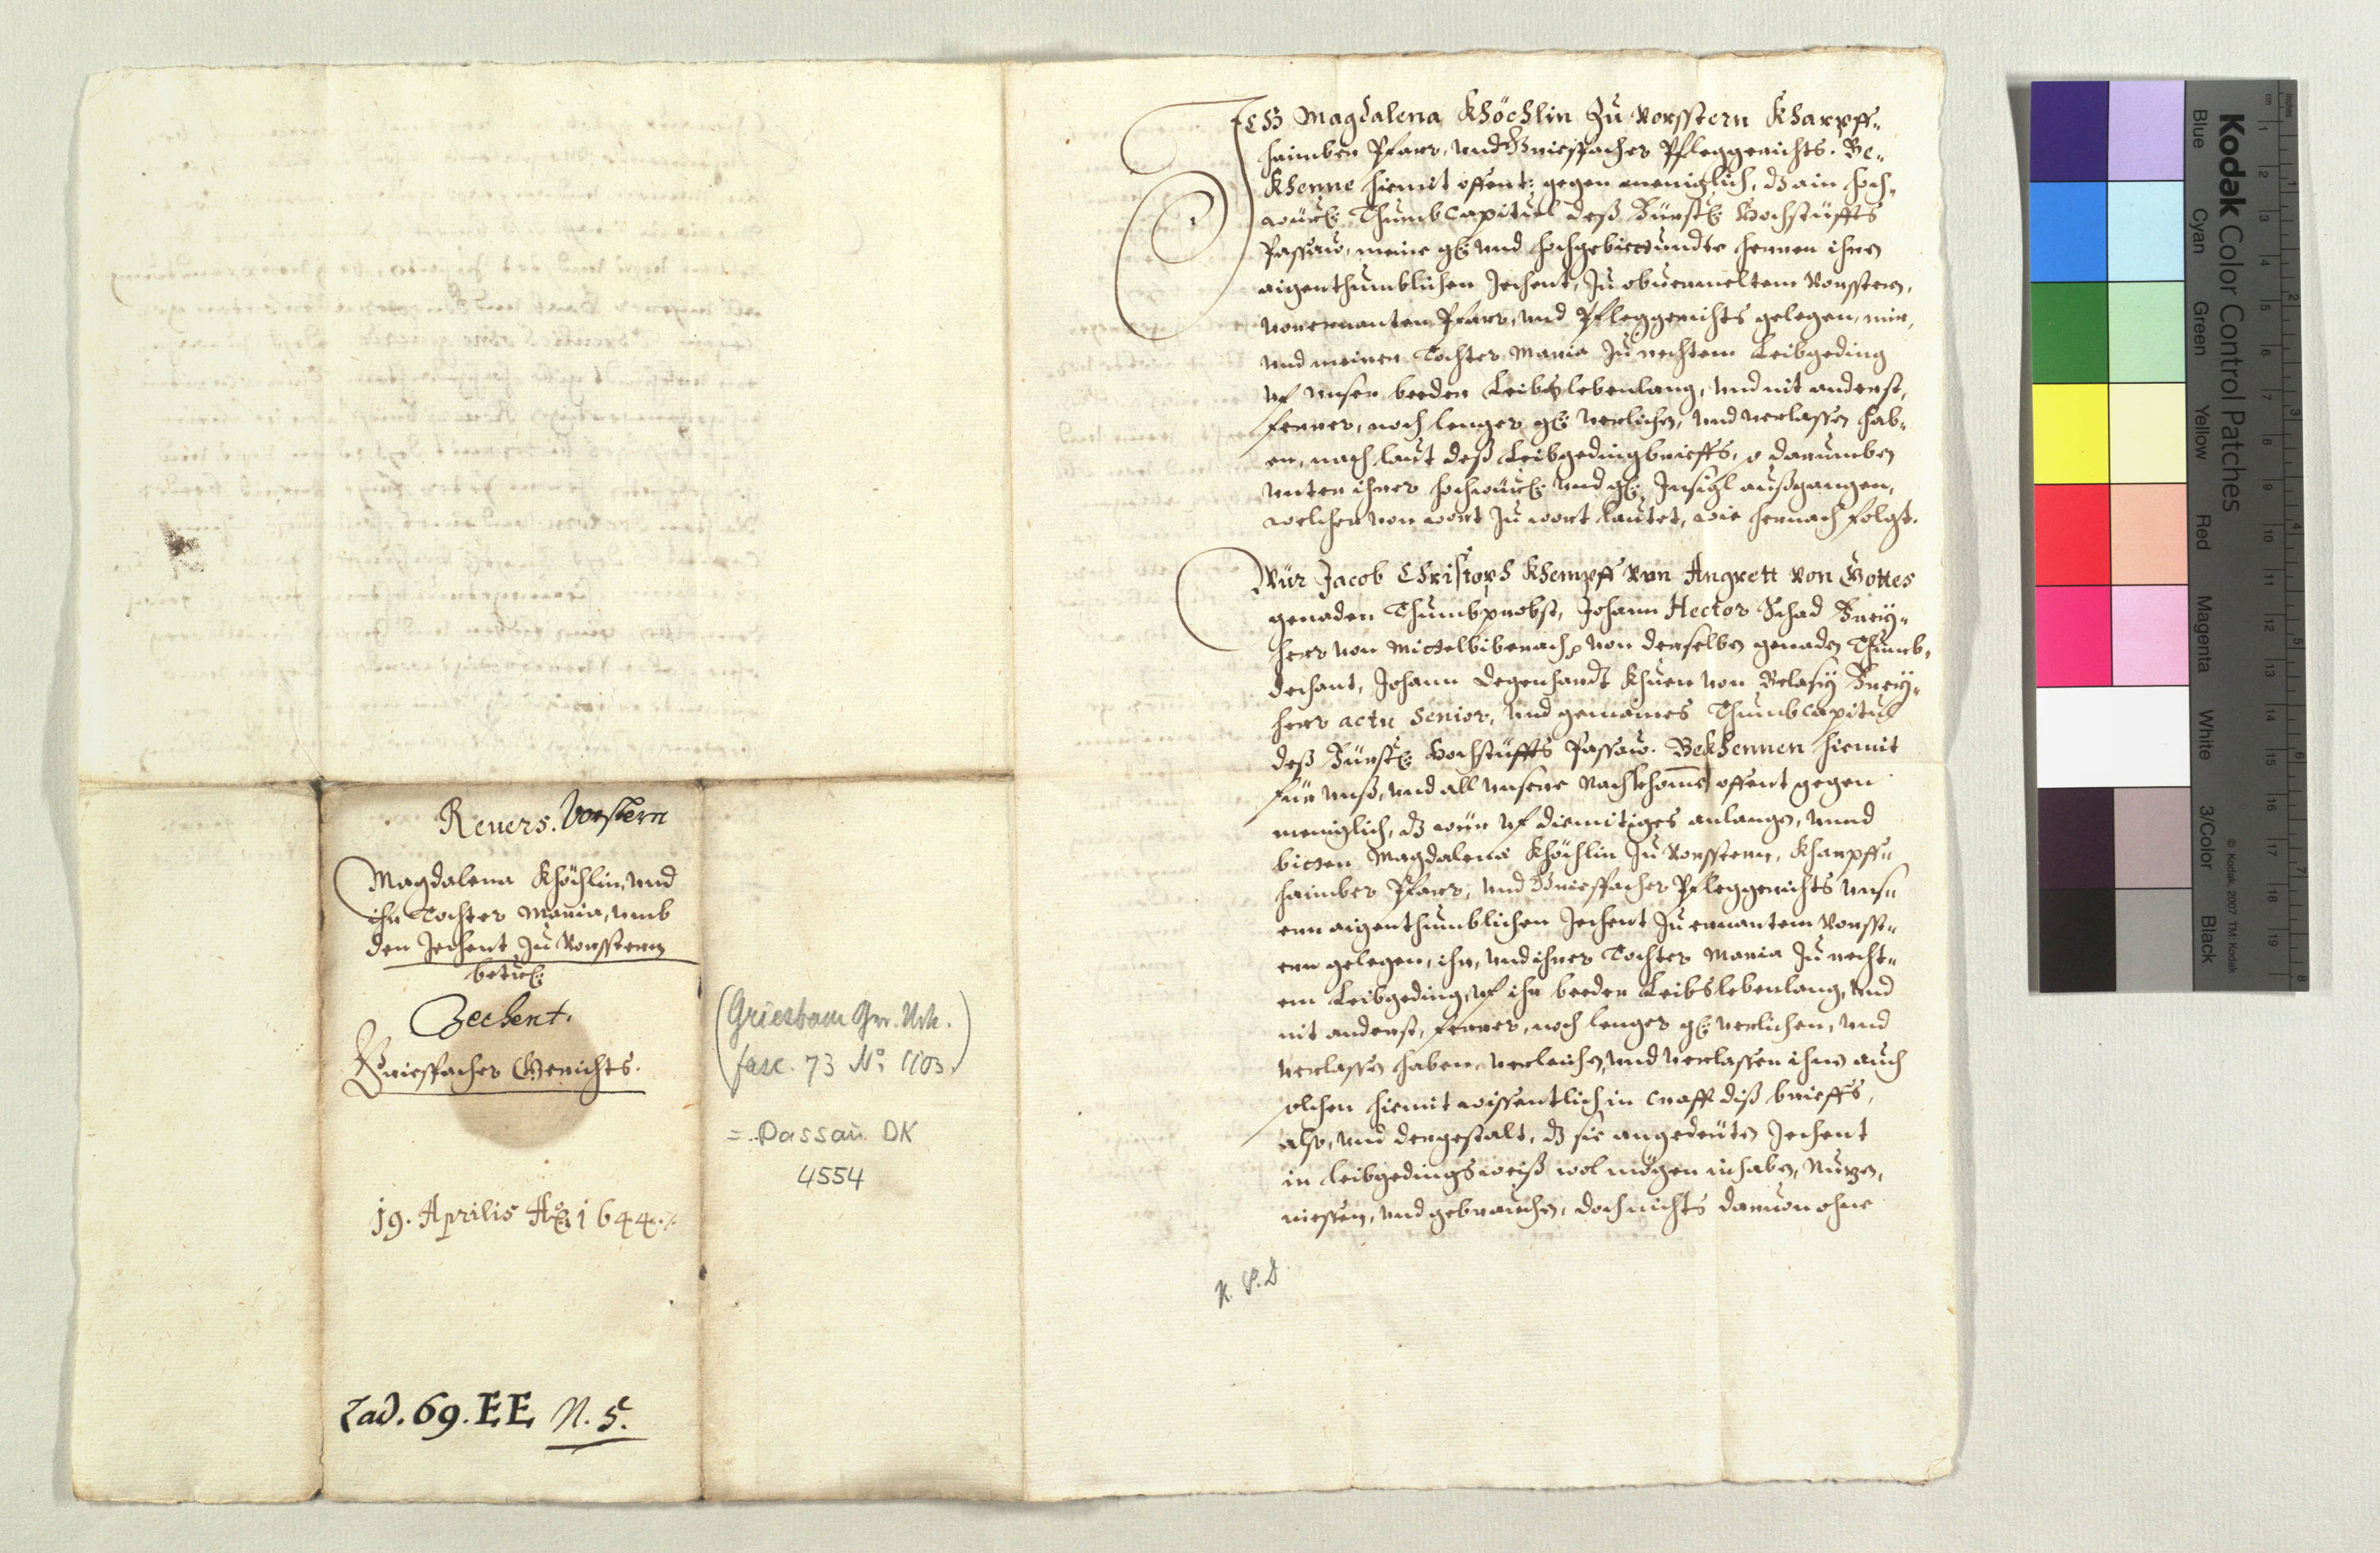 Reuers. Vorstern
Magdalena Khöchlin, und
ihr Tochter Maria, umb
den Zechent zu Vorsstern
betr:
Zechent.
Griesspacher Gerichts.
19. Aprilis Ao 1644 ./.
Lad. 69. EE N. 5.
(Griesbam Ger. Urk.
fasc. 73 No 1103.)
= Passau DK
4554
Ich Magdalena Khöchlin Zu Vorsstern Kharpff„
haimber Pfarr, und Griesspacher Pfleggerichts. Be„
Khenne hiemit offent: gegen meniglich, dz ain hoch„
würd: Thumbcapitul deß Fürstl: Hochstüffts
Passaw, meine g: und hochgebiettundte herren ihren
aigenthumblichen Zechent, zu obuermeltem Vorsstern,
vorernanten Pfarr, und Pfleggerichts gelegen, mir,
und meiner Tochter Maria zu rechtem Leibgeding
uf unser beeder Leibslebenlang, und nit anderst,
ferrer, noch lenger g: verlichen, und verlassen hab„
en, nach laut deß Leibgedingbrieffs, so darumben
unter ihrer hochwürd: und g: Insigl außgangen,
welcher von wort zu wort lautet, wie hernach folgt.
Wür Jacob Christoph Khempff von Angrett von Gottes
genaden Thumbprobst, Johann Hector Schad Frey„
herr von Mittelbiberach, von derselben genaden Thumb„
dechant, Johann Degenhardt Khuen von Belasy Frey„
herr actu Senior, und gemaines Thumbcapitul
deß Fürstl: Hochstüffts Passaw. Bekhennen hiemit
für unß, und all unsere Nachkhomen offent gegen
meniglich, dz wür uf diemitiges anlangen, unnd
bitten Magdalena Khöchlin zu Vorsstern, Kharpff„
haimber Pfarr, und Griesspacher Pfleggerichts uns„
ern aigenthumblichen Zechent zu ernantem Vorsst„
ern gelegen, ihr, und ihrer Tochter Maria zu recht„
em Leibgeding, uf ihr beeder Leibslebenlang, und
nit anderst, ferrer, noch lenger g: verlichen, und
verlassen haben, verleichen, und verlassen ihnen auch
solchen hiemit wissentlich in crafft diß brieffs,
also, und dergestalt, dz sie angedeuten Zechent
in leibgedingsweiß wol mögen inhaben, Nuzen,
niessen, und gebrauchen, doch nichts daruon ohne
K. S. D
Kodak Color Control Patches
Blue Cyan Green Yellow Red Magenta White 3/Color Black
© Kodak, 2007 TM: Kodak